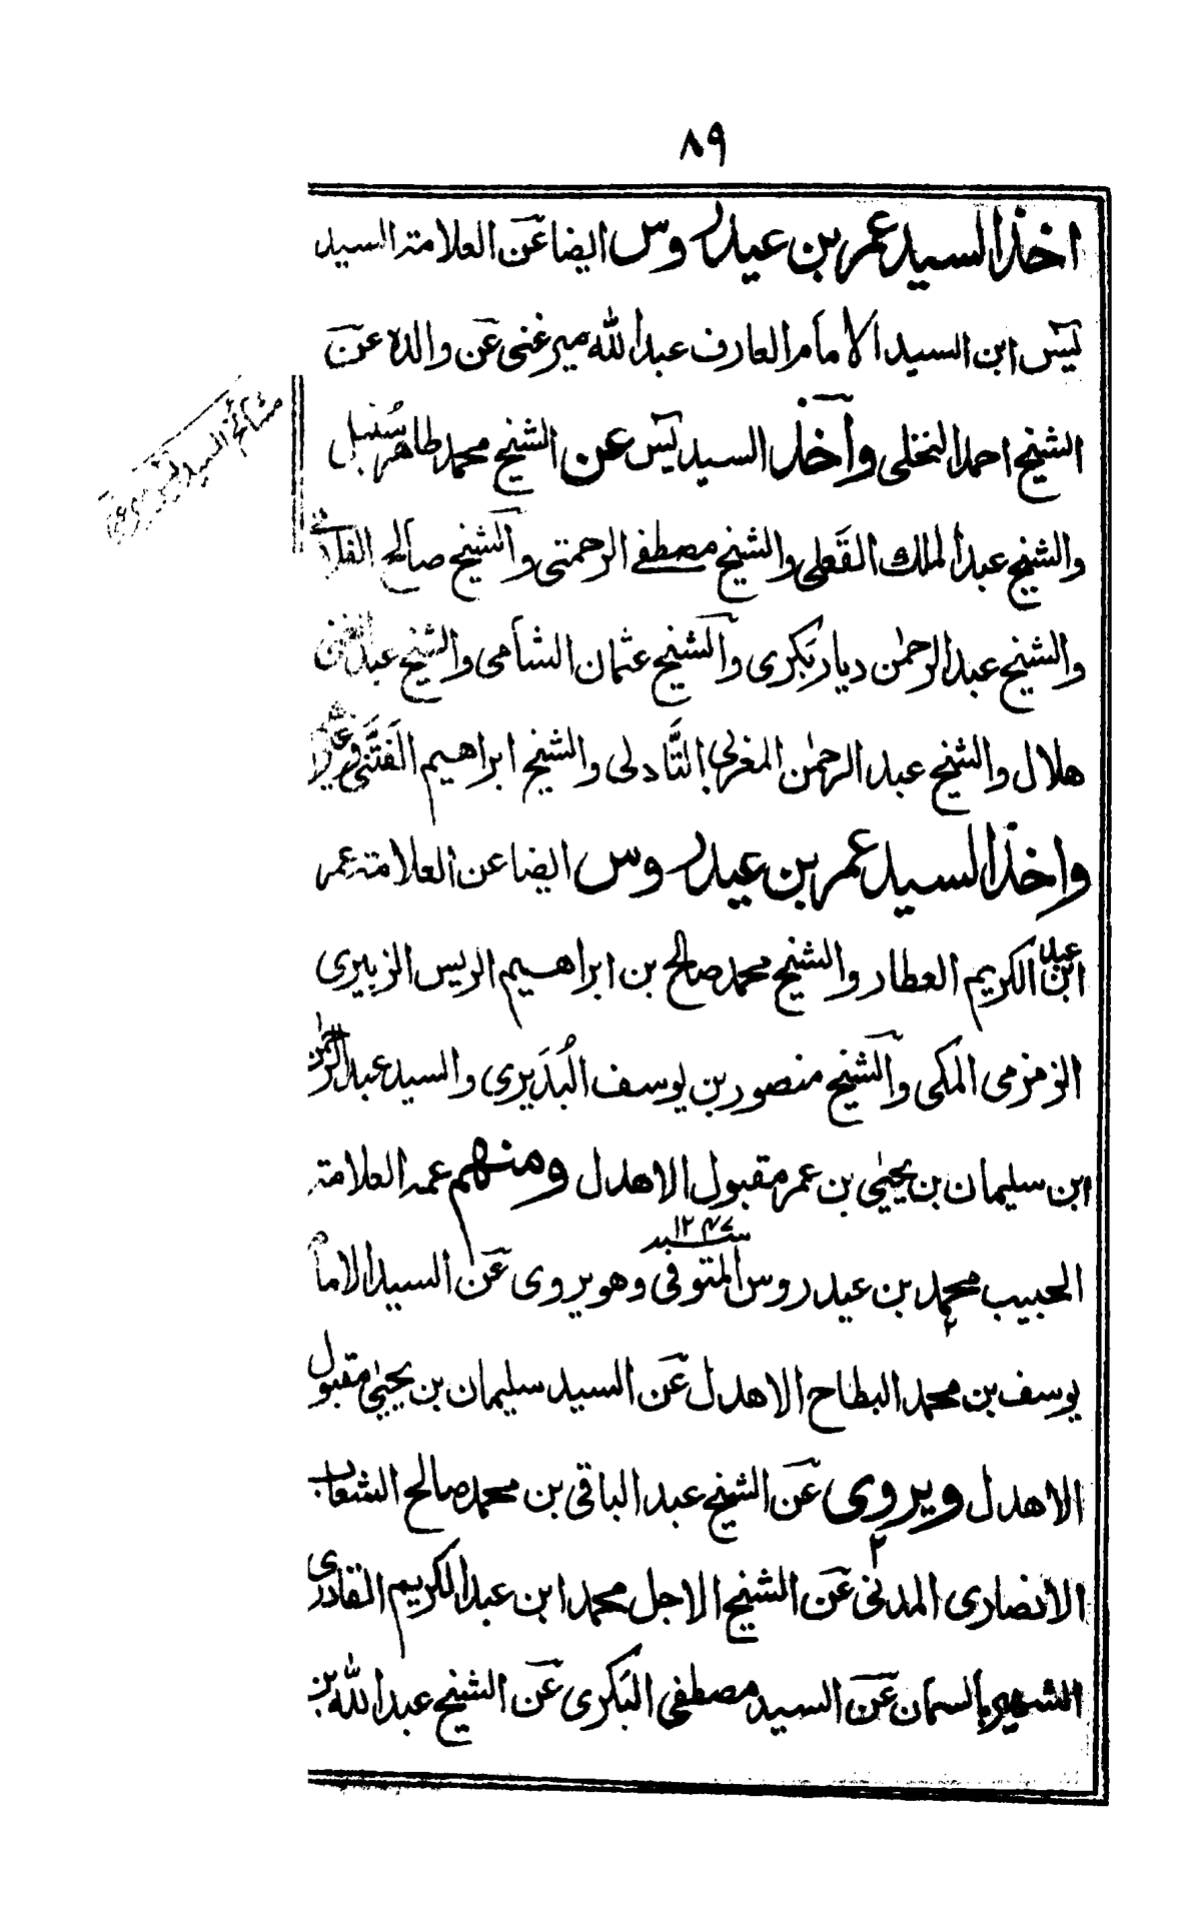 ٨٩
اخذ السيد عمر بن عيدروس ايضا عن العلامة السيد
يٰس ابن السيد الامام العارف عبد الله ميرغنى عن والده عن
الشيخ احمد النخلى وأخذ السيد يٰس عن الشيخ محمد طاهر سُنبل
والشيخ عبد الملك القَعلى والشيخ مصطفى الرحمتى والشيخ صالح الفلانى
والشيخ عبد الرحمٰن ديار بَكرى والشيخ عثمان الشامى والشيخ عبد
هلال والشيخ عبد الرحمٰن المغربى التَّادلى والشيخ ابراهيم الفَتَّنى
واخذ السيد عمر بن عيدروس ايضا عن العلامة عمر
ابن عبد الكريم العطار والشيخ محمد صالح بن ابراهيم الريس الزبيرى
الزمزمى المكى والشيخ منصور بن يوسف البُدَيرى والسيد عبد الرحمٰن
ابن سليمان بن يحيٰى بن عمر مقبول الاهدل ومنهم عمه العلامة
الحبيب محمد بن عيدروس المتوفى سنة ١٢٤٧ وهو يروى عن السيد الامام
يوسف بن محمد البطاح الاهدل عن السيد سليمان بن يحيٰى مقبول
الاهدل ويروى عن الشيخ عبد الباقى بن محمد صالح الشعاب
الانصارى المدنى عن الشيخ الاجل محمد ابن عبد الكريم القادرى
الشهير بالسمان عن السيد مصطفى البَكرى عن الشيخ عبد الله بن
مشائخ السيد